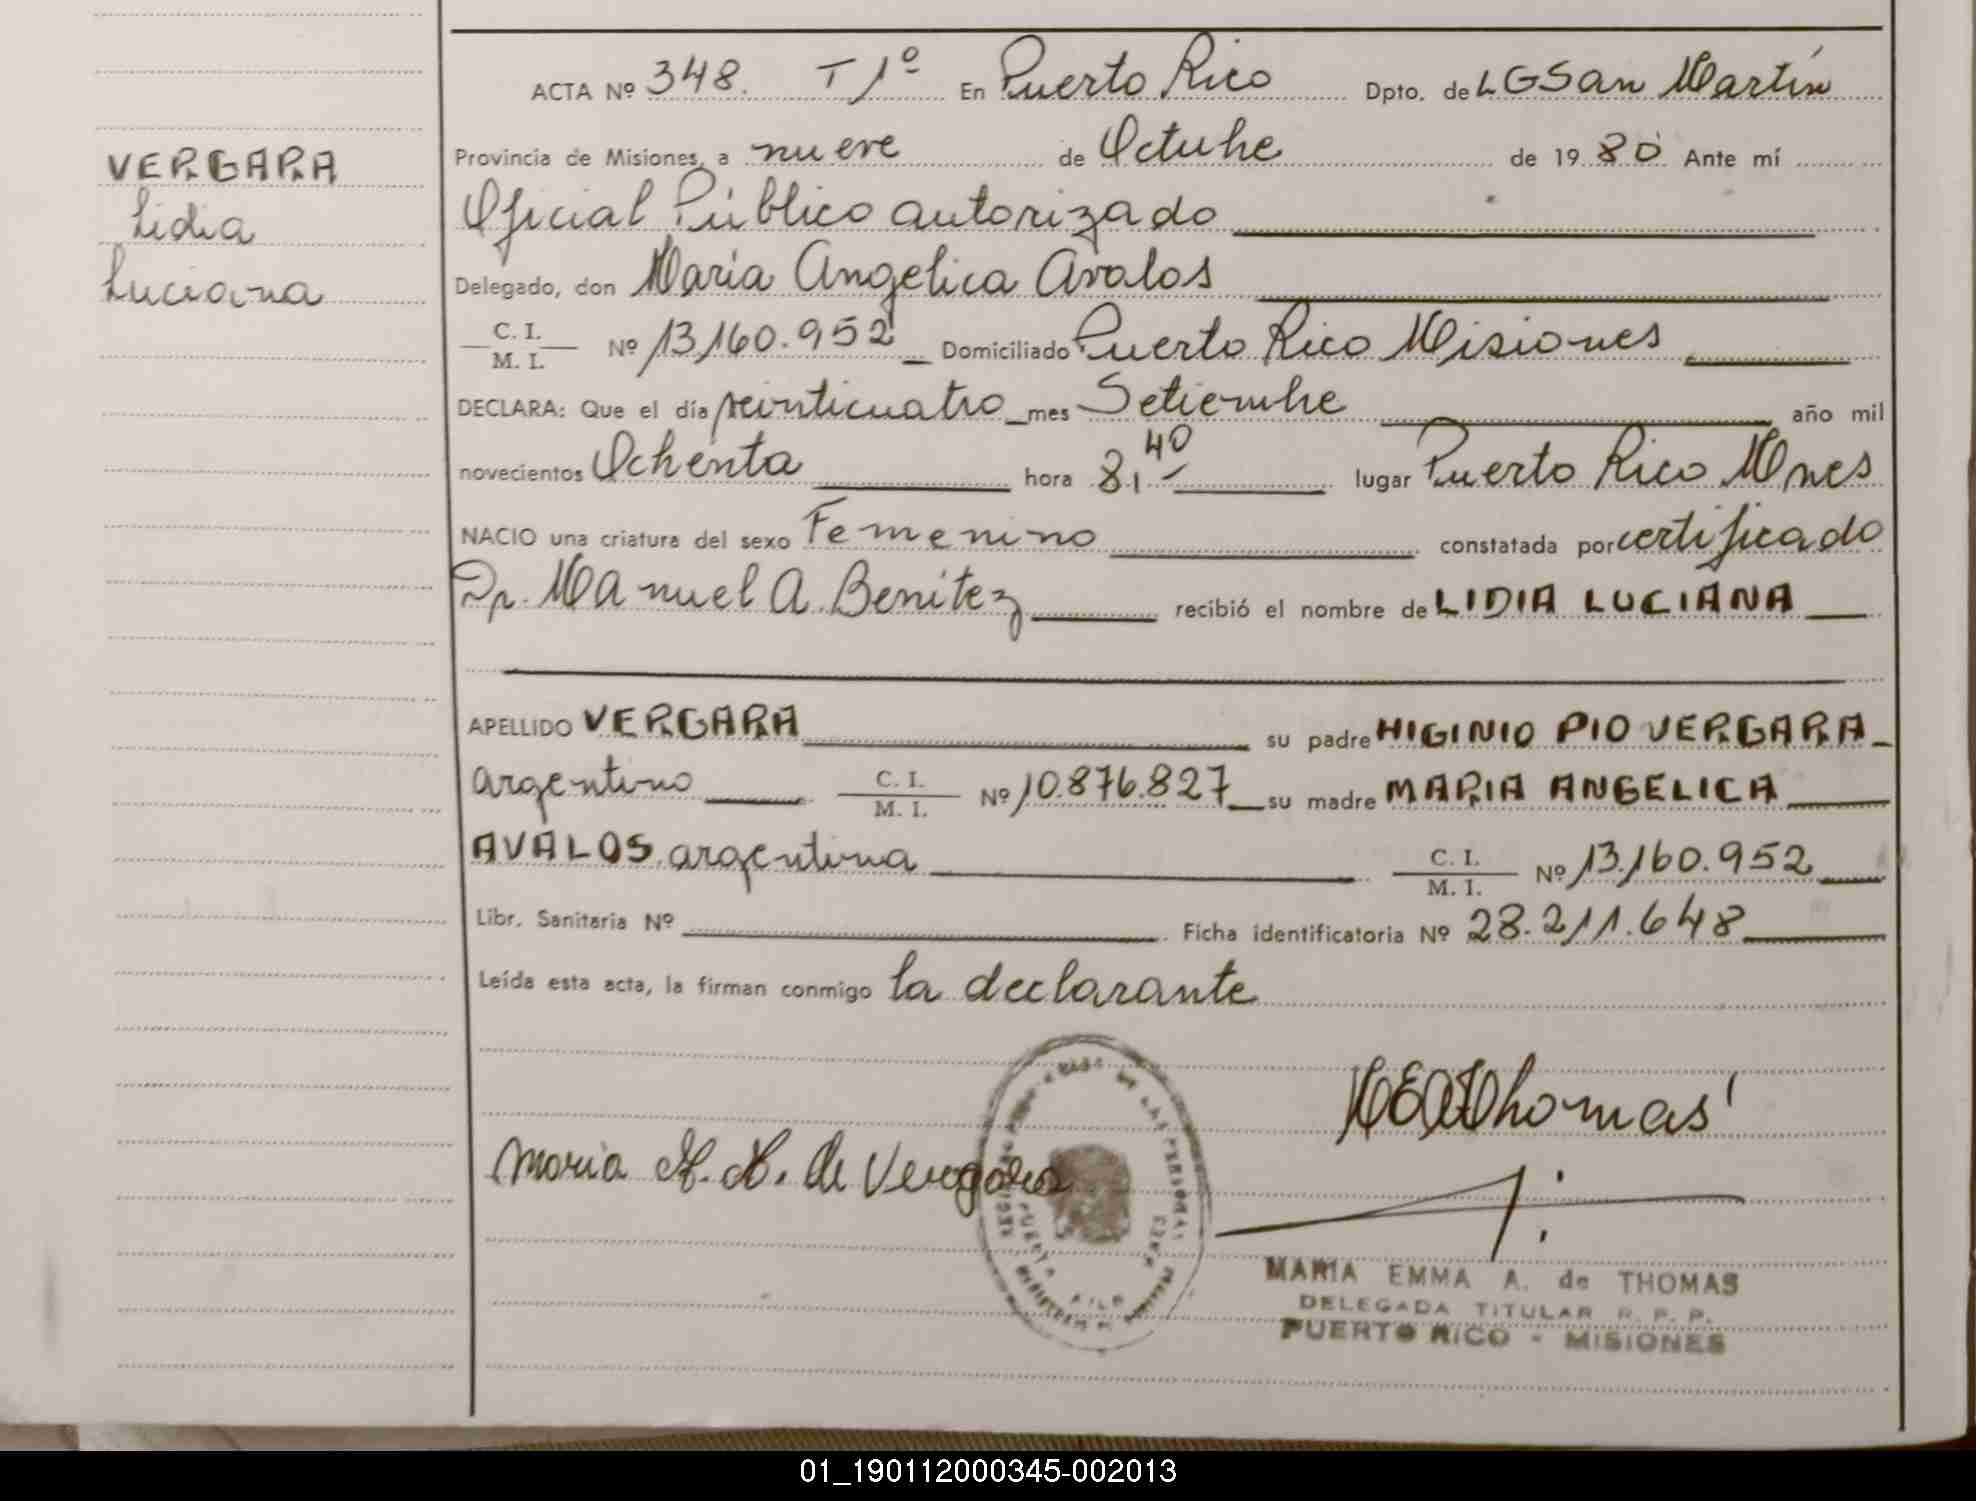 ACTA Nº 348. T 1º En Puerto Rico Dpto. de LGSan Martín
VERGARA
Lidia
Luciana
Provincia de Misiones, a nueve de Octubre de 19 80 Ante mí
Oficial Público autorizado
Delegado, don María Angelica Avalos
C. I.
M. I. Nº 13.160.952 Domiciliado Puerto Rico Misiones
DECLARA: Que el día veinticuatro mes Setiembre año mil
novecientos Ochenta hora 8,40 lugar Puerto Rico Mnes
NACIO una criatura del sexo Femenino constatada por certificado
Dr. Manuel A. Benítez recibió el nombre de LIDIA LUCIANA
APELLIDO VERGARA su padre HIGINIO PIO VERGARA
argentino C. I. M. I. Nº 10.876.827 su madre MARIA ANGELICA
AVALOS argentina C. I. M. I. Nº 13.160.952
Libr. Sanitaria Nº Ficha identificatoria Nº 28.211.648
Leída esta acta, la firman conmigo la declarante
Maria A. A. de Vergara
MEAThomas
MARIA EMMA A. de THOMAS
DELEGADA TITULAR R. P. P.
PUERTO RICO - MISIONES
01_190112000345-002013